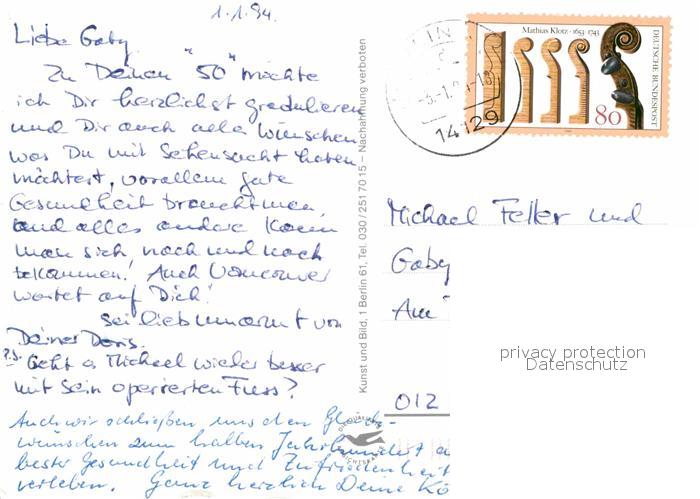 1.1.94.
Liebe Gaby
Zu Deinen "50" möchte
ich Dir herzlichst gratulieren
und Dir auch alles wünschen
was Du mit Sehnsucht haben
möchtest, vorallem gute
Gesundheit braucht man,
und alles andere kann
man sich, nach und nach
bekommen! Auch Vancouver
wartet auf Dich!
sei lieb umarmt von
Deiner Doris.
P.S. Geht es Michael wieder besser
mit sein operierten Fuss?
Auch wir schließen uns den Glück-
wünschen zum halben Jahrhundert a
beste Gesundheit und Zufriedenheit
verleben. Ganz herzlich Deine Kö
Kunst und Bild, 1 Berlin 61, Tel. 030 / 251 70 15 – Nachahmung verboten
14129
Mathias Klotz · 1653-1743
DEUTSCHE BUNDESPOST
80
Michael Feller und
Gaby
Am
012
privacy protection
Datenschutz